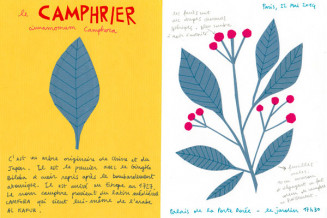 le CAMPHRIER
cinnamomum camphora
C'est un arbre originaire de Chine et du
Japon. Il est le premier avec le Ginkgo
Biloba à avoir repris après le bombardement
atomique. Il est arrivé en Europe en 1757.
Le nom camphre provient du latin médiéval
CAMFORA qui vient lui-même de l'arabe
AL KAFUR.
Paris, 22 Mai 2014
Ses fruits sont
des drupes
feuilles
Palais de la Porte Dorée - le jardin 17h30